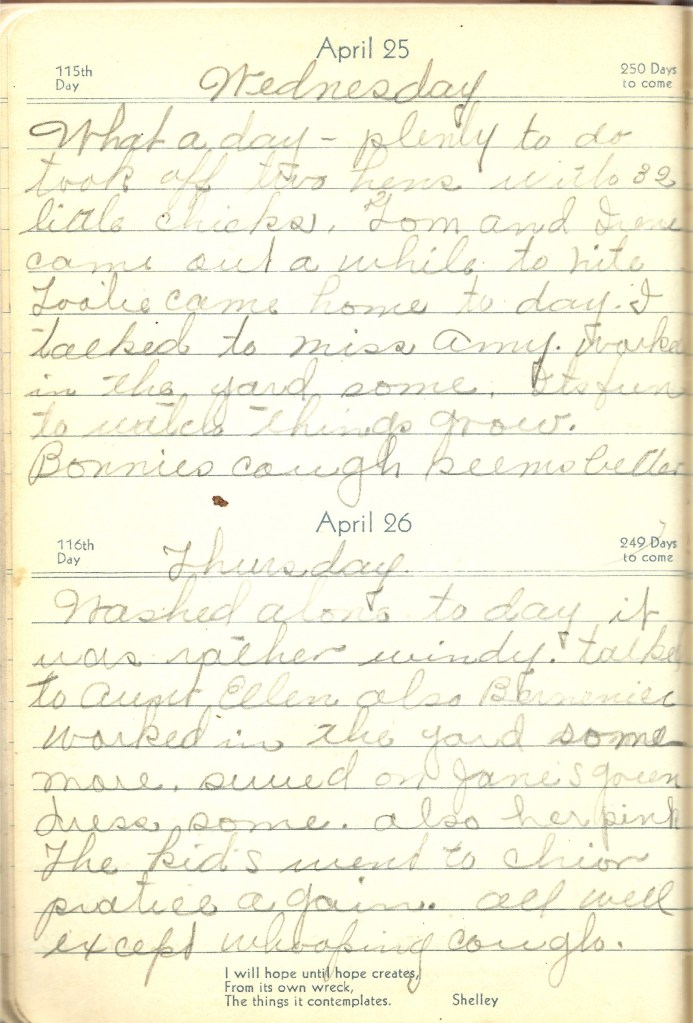 April 25
115th
Day
250 Days
to come
Wednesday
What a day - plenty to do
took off two hens with 32
little chicks. Tom and Irene
came out a while to nite
Tootie came home to day. I
talked to miss Amy. Worked
in the yard some. Its fun
to watch things grow.
Bonnies cough seems better
April 26
116th
Day
249 Days
to come
Thursday.
Washed alone to day it
was rather windy. talked
to Aunt Ellen also
worked in the yard some
more. sewed on Jane's green
dress some. also her pink
The kid's went to chior
pratice again. all well
except whooping cough.
I will hope until hope creates,
From its own wreck,
The things it contemplates. Shelley